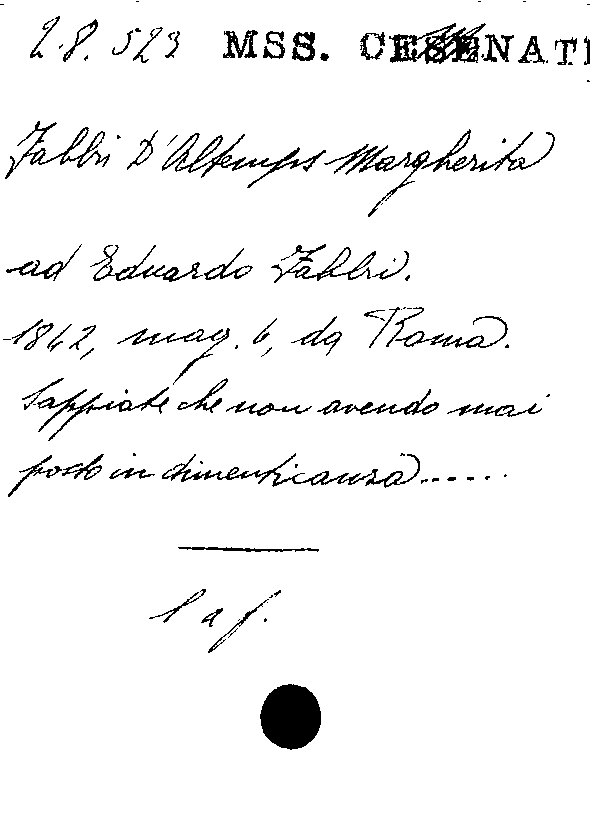 2.8.523 MSS. CESENATI
Fabbri D'Altemps Margherita
ad Eduardo Fabbri.
1842, mag. 6, da Roma.
Sappiate che non avendo mai
posto in dimenticanza......
l a f.